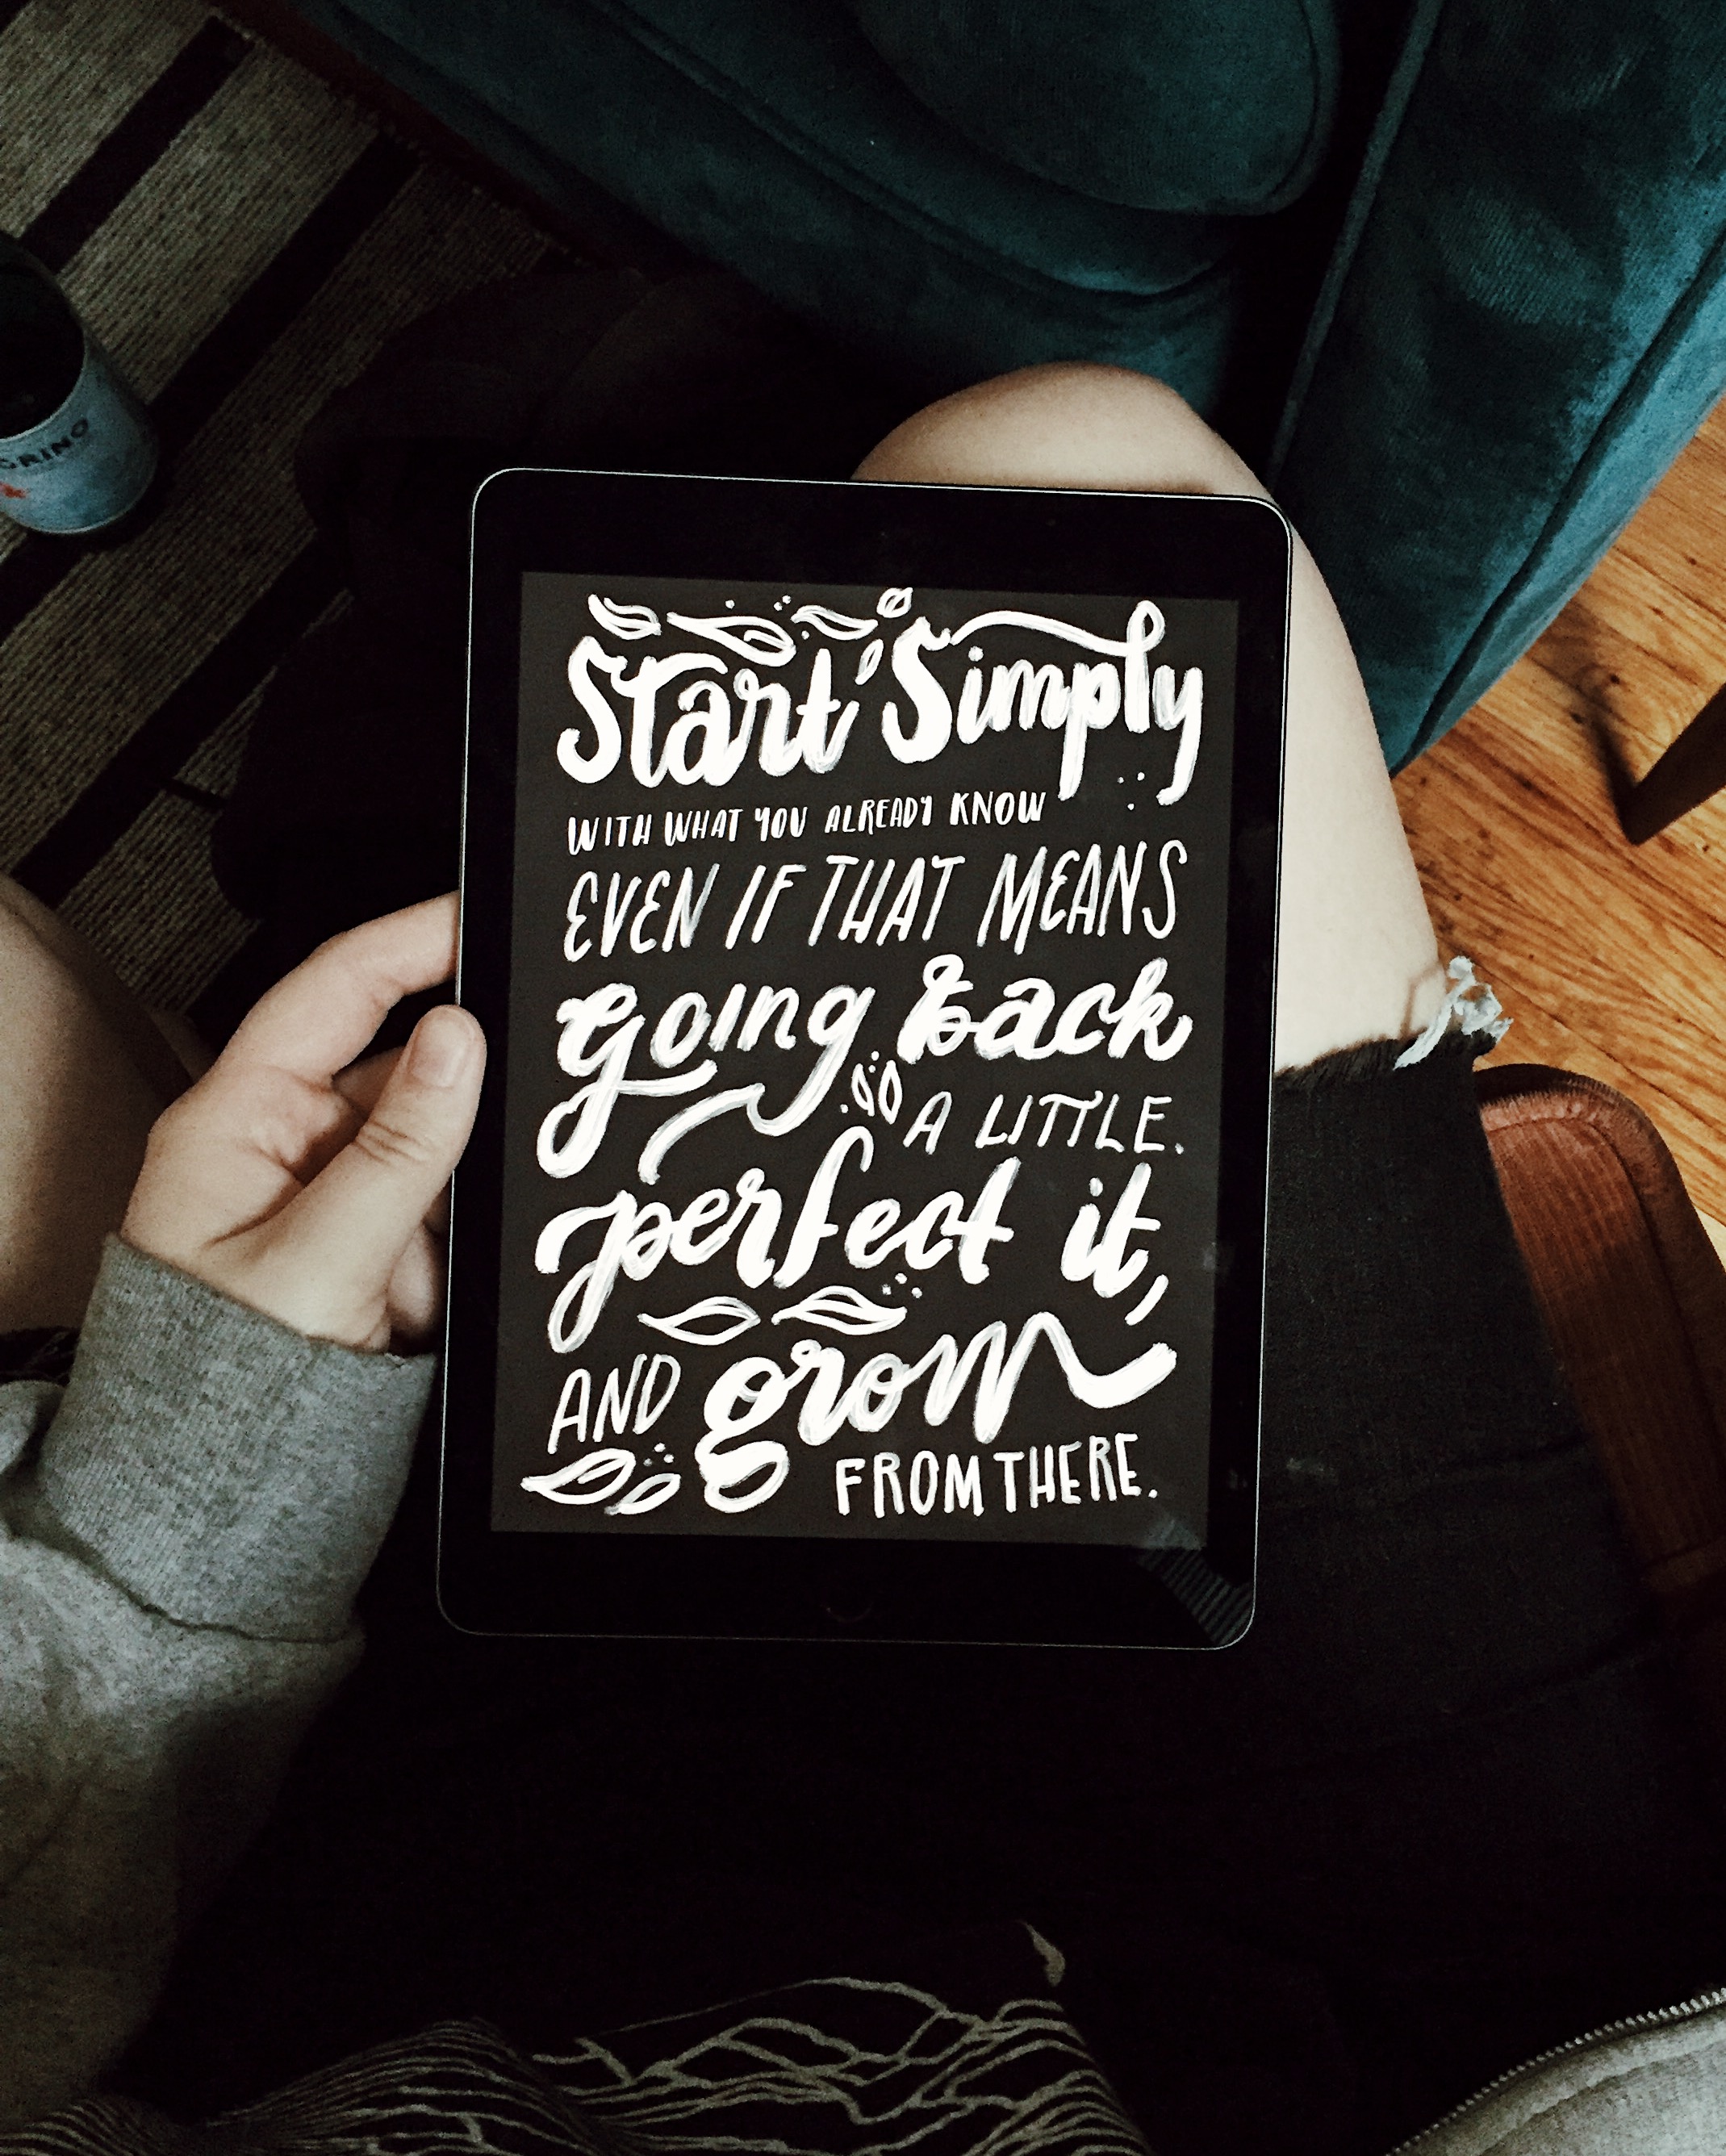 GRINO
Start Simply
WITH WHAT YOU ALREADY KNOW
EVEN IF THAT MEANS
going back
A LITTLE.
perfect it,
AND grow
FROM THERE.